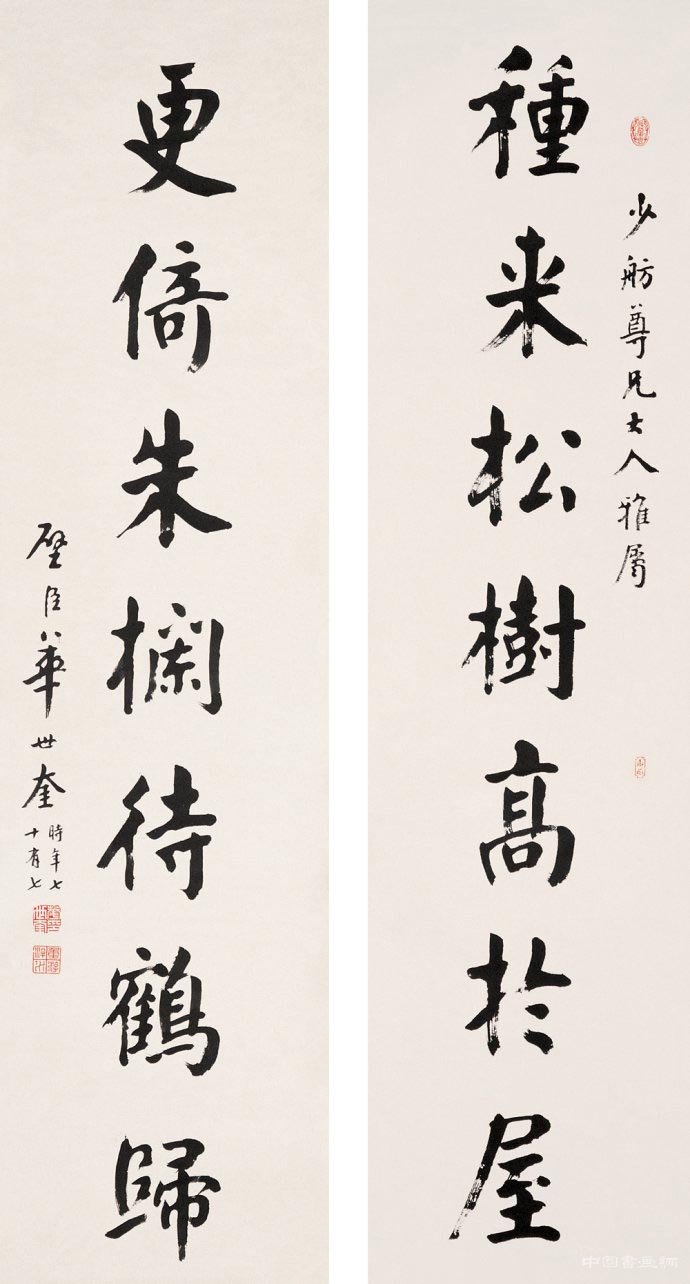 少舫尊兄大人雅属
種来松樹高於屋
更倚朱欄待鶴歸
璧臣華世奎
時年七
十有七
中国書画網